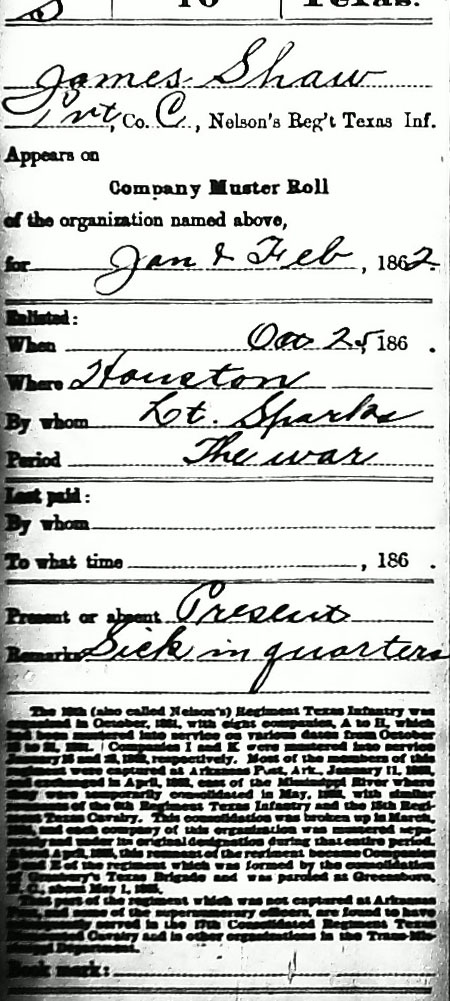 S 10 Texas.
James Shaw
Pvt, Co. C, Nelson's Reg't Texas Inf.
Appears on
Company Muster Roll
of the organization named above,
for Jan & Feb, 1862.
Enlisted:
When Oct 25, 186 .
Where Houston
By whom Lt. Sparks
Period The war
Last paid:
By whom
To what time , 186 .
Present or absent Present
Remarks Sick in quarters
The 10th (also called Nelson's) Regiment Texas Infantry was
organized in October, 1861, with eight companies, A to H, which
had been mustered into service on various dates from October
to 31, 1861. Companies I and K were mustered into service
January and , respectively. Most of the members of this
regiment were captured at Arkansas Post, Ark., January 11, 1863,
and exchanged in April, 1863, east of the Mississippi River where
they were temporarily consolidated in May, 1863, with similar
remnants of the 6th Regiment Texas Infantry and the 15th Regi-
ment Texas Cavalry. This consolidation was broken up in March,
and each company of this organization was mustered sepa-
rately and under its original designation during that entire period.
About April, 1865, this remnant of the regiment became Companies
and K of the regiment which was formed by the consolidation
of Granbury's Texas Brigade and was paroled at Greensboro,
N. C., about May 1, 1865.
That part of the regiment which was not captured at Arkansas
Post, and some of the supernumerary officers, are found to have
served in the 17th Consolidated Regiment Texas
Dismounted Cavalry and in other organizations in the Trans-Mis-
sissippi Department.
Book mark: